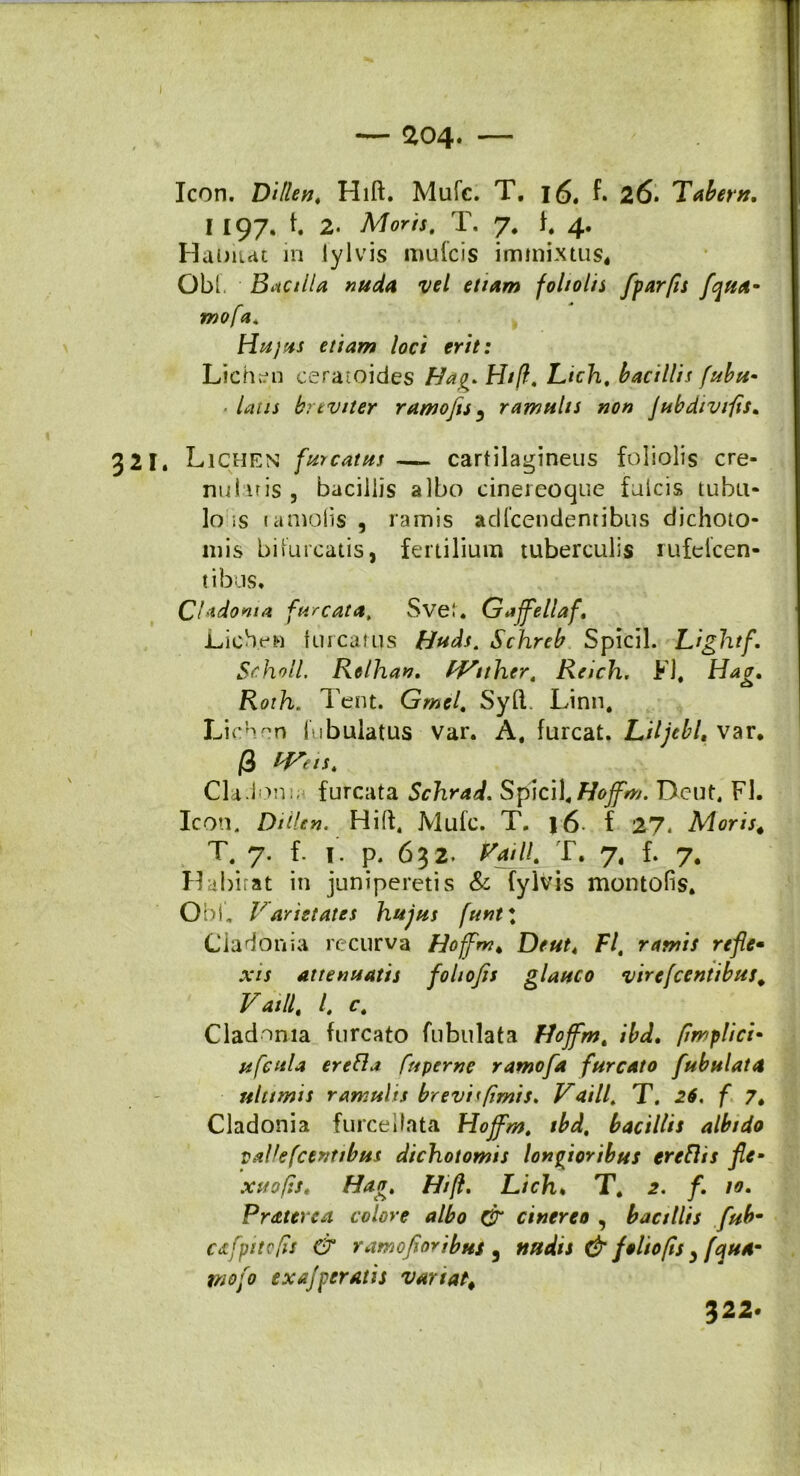 — 204. —
Icon. Dillen. Hiſt. Muſc. T. 16. f. 26. Tabern.
1197. f. 2. Moris. T. 7. f. 4.
Habitat in ſylvis muſcis immixtus.
Obſ. Bacilla nuda vel etiam foliolis ſparſis ſqua-
moſa.
Hujus etiam loci erit:
Lichen ceratoides Hag. Hiſt. Lich. bacillis ſubu-
latis breviter ramoſis, ramulis non ſubdiviſis.
321. LICHEN furcatus — cartilagineus foliolis cre-
nulatis, bacillis albo cinereoque fulcis tubu-
loſis ramoſis, ramis adſcendentibus dichoto-
mis bifurcatis, fertilium tuberculis rufeſcen-
tibus.
Cladonia furcata. Svet. Gaffellaf.
Lichen furcatus Huds. Schreb Spicil. Lightf.
Scholl. Relhan. Wither. Reich. Fl. Hag.
Roth. Tent. Gmel. Syſt. Linn.
Lichen ſubulatus var. A. furcat. Liljebl. var.
β Weis.
Cladonia furcata Schrad. Spicil. Hoffm. Deut. Fl.
Icon. Dillen. Hiſt. Muſc. T. 16. f 27. Moris.
T. 7. f. 1. p. 632. Vaill. T. 7. f. 7.
Habitat in juniperetis & ſylvis montoſis.
Obſ. Varietates hujus ſunt:
Cladonia recurva Hoffm. Deut. Fl. ramis refle-
xis attenuatis folioſis glauco vireſcentibus.
Vaill. l. c.
Cladonia furcato ſubulata Hoffm. ibd. ſimplici-
uſcula erecta ſuperne ramoſa furcato ſubulata
ultimis ramulis breviſſimis. Vaill. T. 26. f 7.
Cladonia furcellata Hoffm. ibd. bacillis albido
palleſcentibus dichotomis longioribus erectis fle-
xuoſis. Hag. Hiſt. Lich. T. 2. f. 10.
Præterea colore albo & cinereo, bacillis ſub-
cæſpitoſis & ramoſioribus, nudis & folioſis, ſqua-
moſo exaſperatis variat.
322.